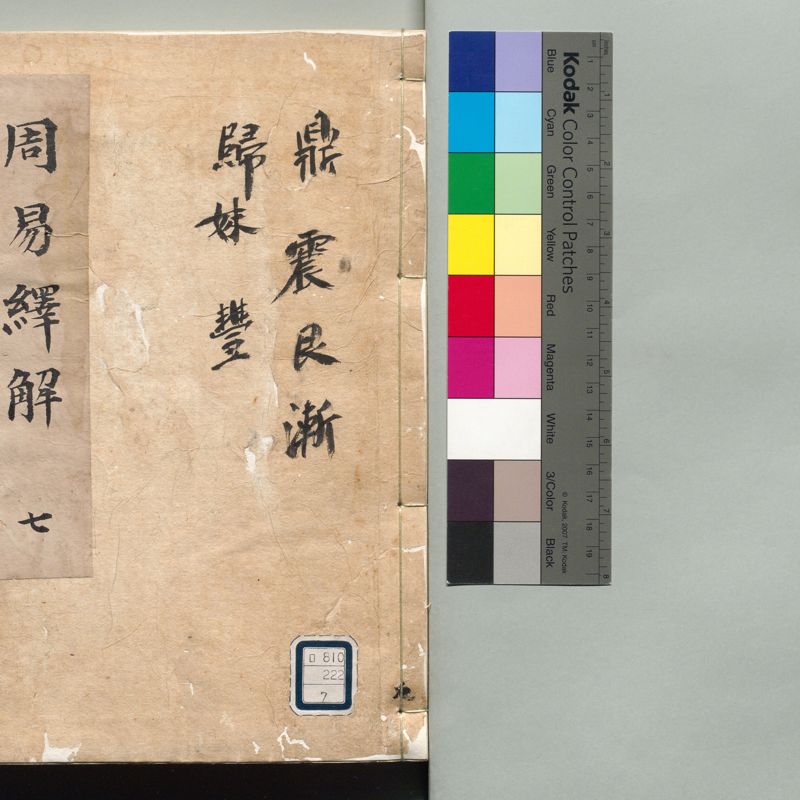 鼎 震 艮 漸
歸妹 豐
周易繹解 七
ロ 810
222
7
Kodak Color Control Patches
Blue
Cyan
Green
Yellow
Red
Magenta
White
3/Color
Black
© Kodak, 2007 TM: Kodak
1 2 3 4 5 6 7 8 9 10 11 12 13 14 15 16 17 18 19
1 2 3 4 5 6 7 8